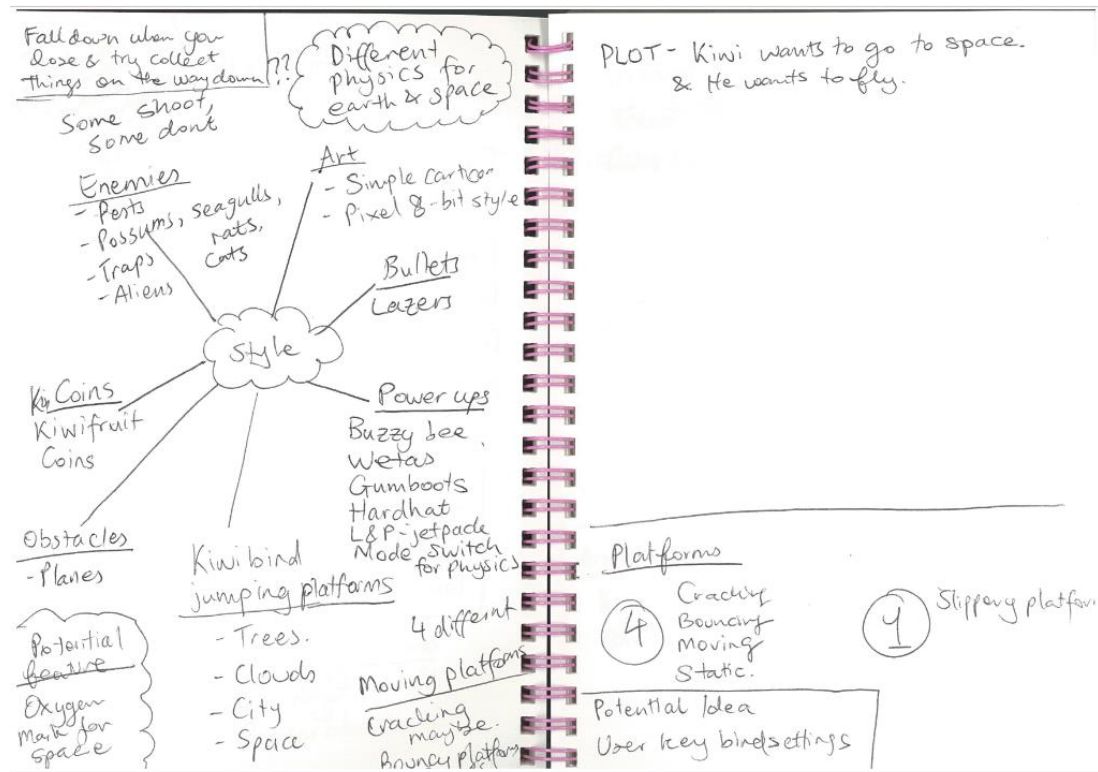 Fall down when you
lose & try collect
things on the way down
??
Different
physics for
earth & space
Some shoot,
Some dont
Enemies
- Pests
- Possums, seagulls,
rats,
cats
- Traps
- Aliens
Art
- Simple cartoon
- Pixel 8-bit style
Bullets
Lazers
Style
Coins
Kiwifruit
Coins
Power ups
Buzzy bee
Wetas
Gumboots
Hardhat
L&P-jetpack
Mode switch
for physics
Obstacles
- Planes
Kiwi bird
jumping platforms
- Trees.
- Clouds
- City
- Space
Potential
feature
Oxygen
mask for
space
4 different
Moving platforms
Cracking
maybe.
Bouncy platform
PLOT - Kiwi wants to go to space.
& He wants to fly.
Platforms
4
Cracking
Bouncing
Moving
Static.
1
Slippery platfor
Potential Idea
User key bind settings